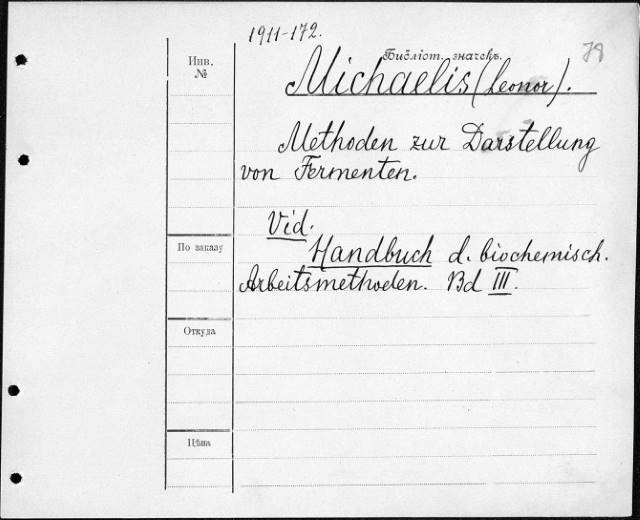 1911-172.
Библіот. значекъ.
78
Инв.
№
Michaelis (Leonor).
Methoden zur Darstellung
von Fermenten.
Vid.
По заказу
Handbuch d. biochemisch.
Arbeitsmethoden. Bd III.
Откуда
Цѣна